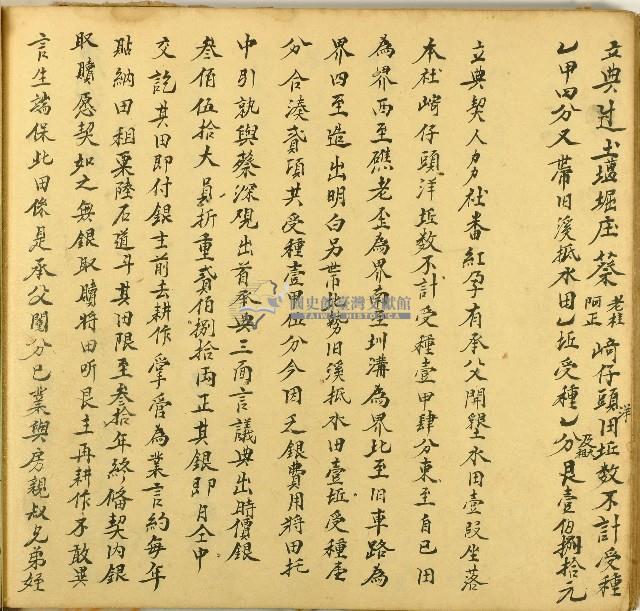 立典过土壇堀庄蔡老柱阿正崎仔頭洋田坵数不計受種
乚甲四分又帶旧溪抵水田乚坵受種乚分艮壹佰捌拾元
立典契人力力社番紅孕有承父開墾水田壹段坐落
本社崎仔頭洋坵数不計受種壹甲肆分東至自已田
為界西至礁老歪為界南至圳溝為界北至旧車路為
界四至造出明白另帶北勢旧溪抵水田壹坵受種壹
分合湊貳項共受種壹甲伍分今因乏銀費用將田托
中引就與蔡深觀出首承典三面言議典出時價銀
叁佰伍拾大員折重貳佰捌拾両正其銀即日仝中
交訖其田即付銀主前去耕作掌管為業言約每年
貼納田租粟陸石道斗其田限至叁拾年終備契内銀
取贖愿契如之無銀取贖將田听艮主再耕作不敢異
言生端保此田係是承父鬮分已業與房親叔兄弟姪
國史館臺灣文獻館
TAIWAN HISTORICA